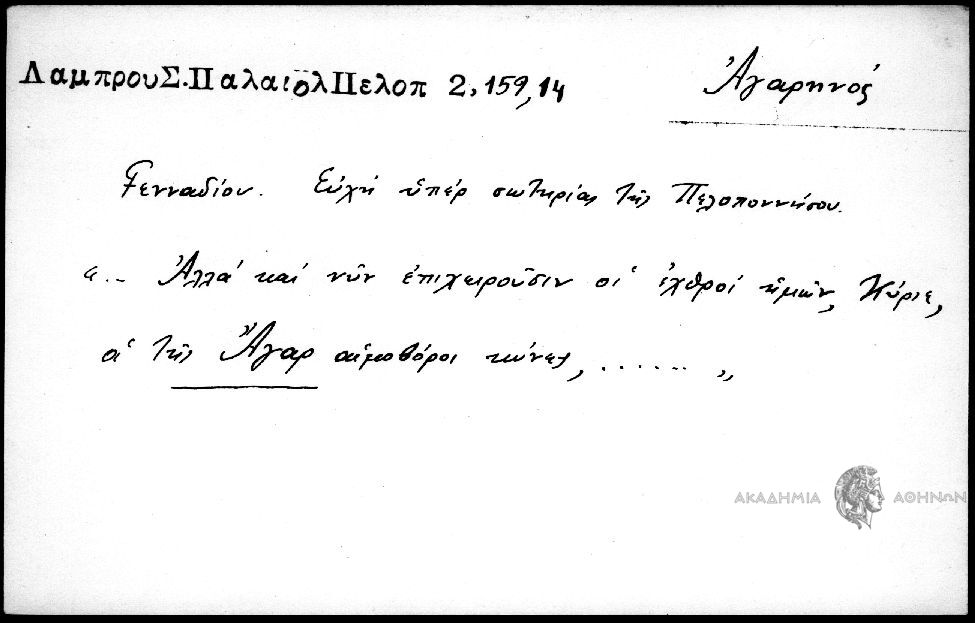 ΛαμπρουΣ.ΠαλαιολΠελοπ 2,159,14
Ἀγαρηνός
Γενναδίου. Εὐχή ὑπέρ σωτηρίας τῆς Πελοποννήσου.
"... Ἀλλά καί νῦν ἐπιχειροῦσιν οἱ ἐχθροί ἡμῶν, Κύριε,
οἱ τῆς Ἄγαρ αἱμοβόροι κύνες, ...... "
ΑΚΑΔΗΜΙΑ ΑΘΗΝΩΝ